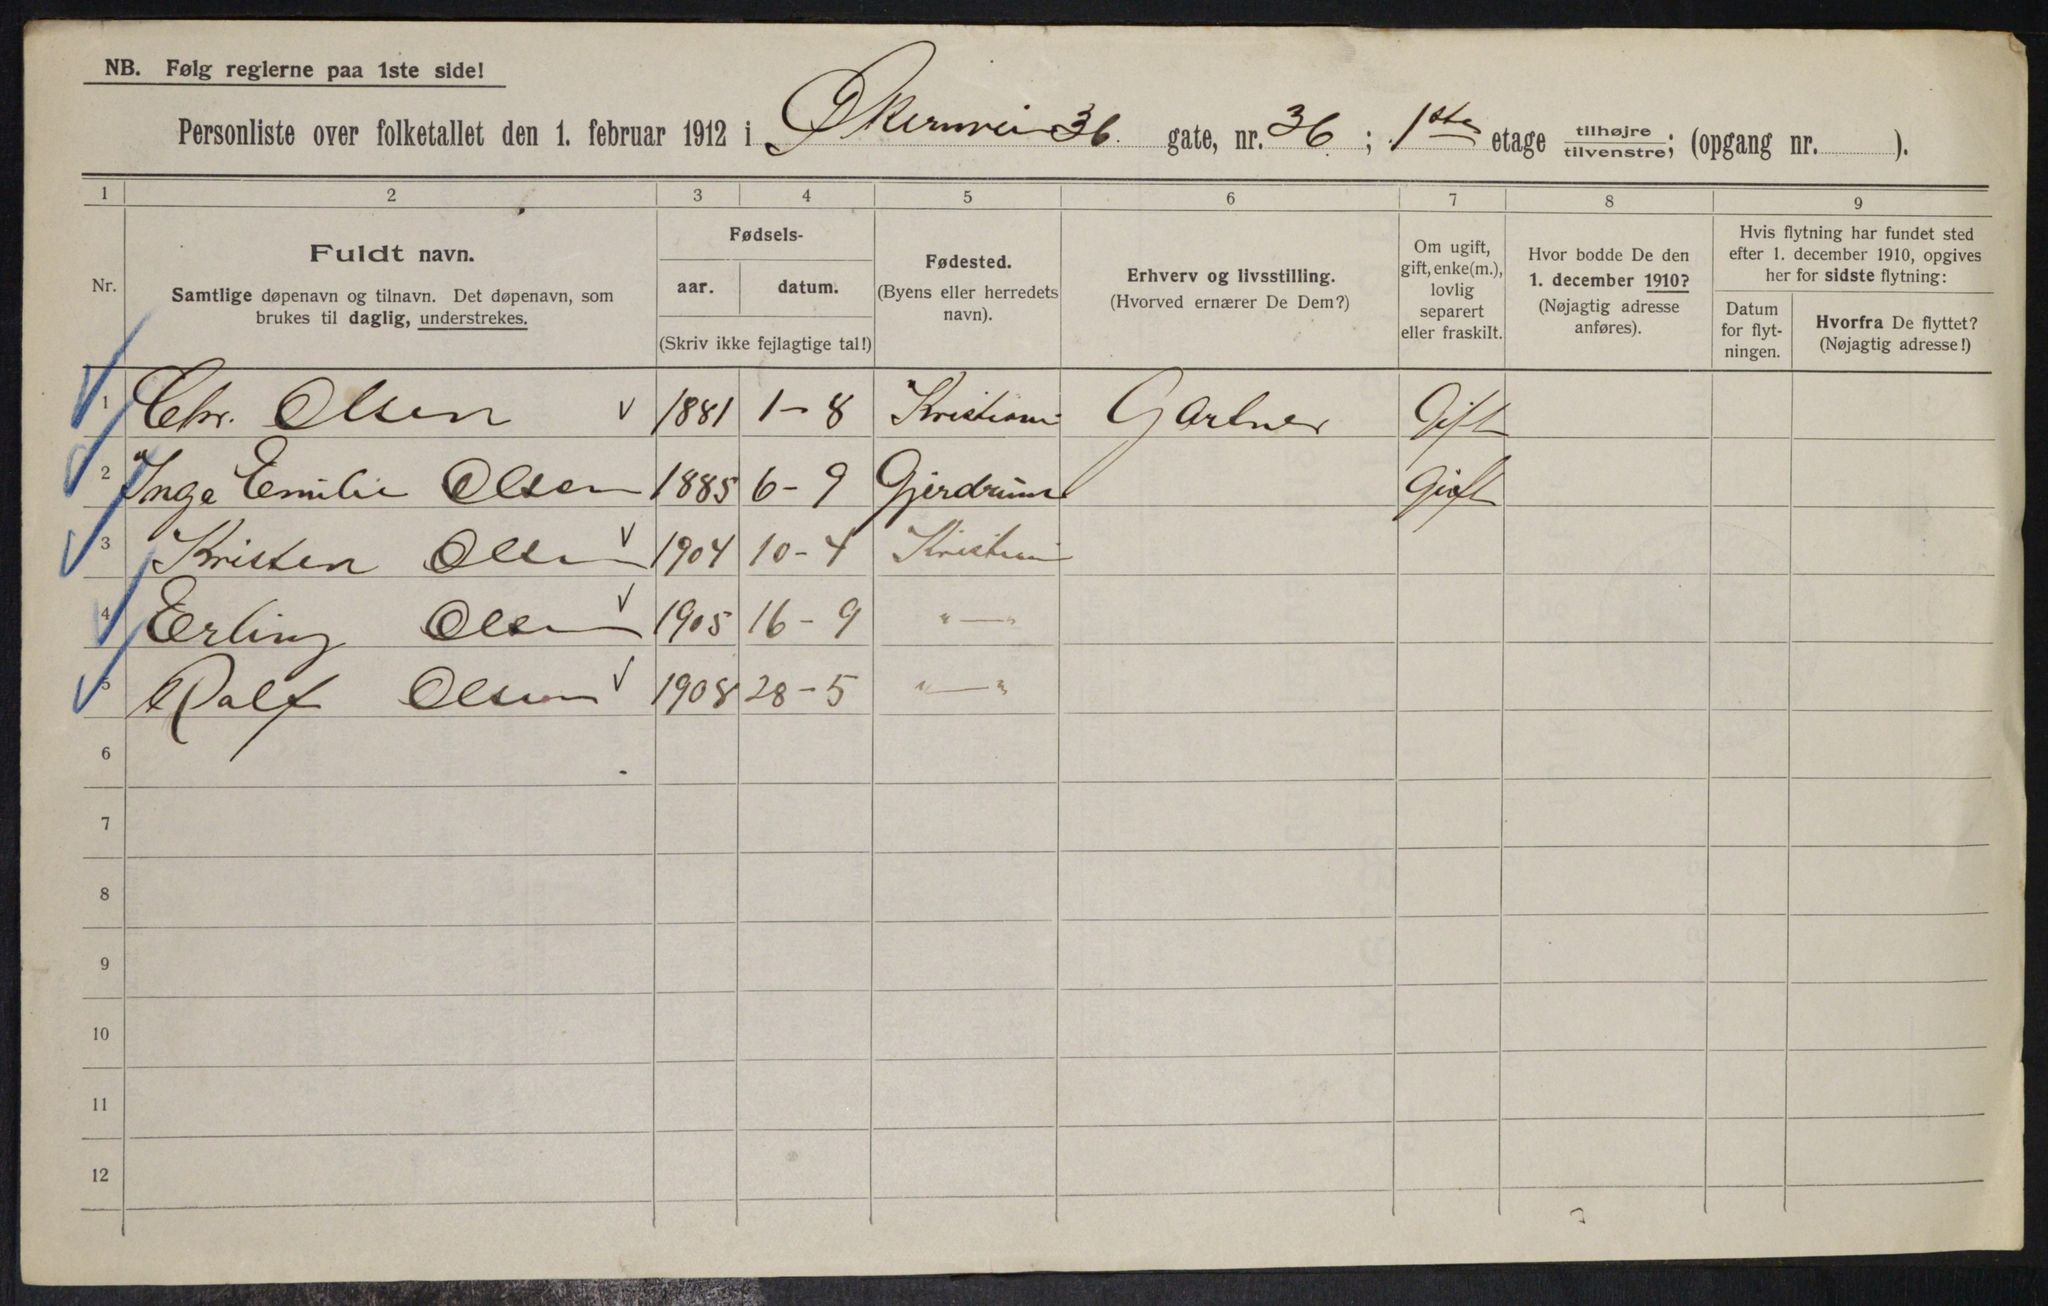 NB. Følg reglerne paa 1ste side!
Personliste over folketallet den 1. februar 1912 i Økernvei 36 gate, nr. 36; 1ste etage tilhøjre/tilvenstre; (opgang nr. ).
1 2 3 4 5 6 7 8 9
Nr.
Fuldt navn.
Samtlige døpenavn og tilnavn. Det døpenavn, som
brukes til daglig, understrekes.
Fødsels-
aar. datum.
(Skriv ikke fejlagtige tal!)
Fødested.
(Byens eller herredets
navn).
Erhverv og livsstilling.
(Hvorved ernærer De Dem?)
Om ugift,
gift, enke(m.),
lovlig
separert
eller fraskilt.
Hvor bodde De den
1. december 1910?
(Nøjagtig adresse
anføres).
Hvis flytning har fundet sted
efter 1. december 1910, opgives
her for sidste flytning:
Datum
for flyt-
ningen.
Hvorfra De flyttet?
(Nøjagtig adresse!)
1 Chr. Olsen v 1881 1-8 Kristiania Gartner Gift
2 Inga Emilie Olsen 1885 6-9 Gjerdrum Gift
3 Kristen Olsen v 1904 10-4 Kristiania
4 Erling Olsen v 1905 16-9 "—"
5 Rolf Olsen v 1908 28-5 "—"
6
7
8
9
10
11
12